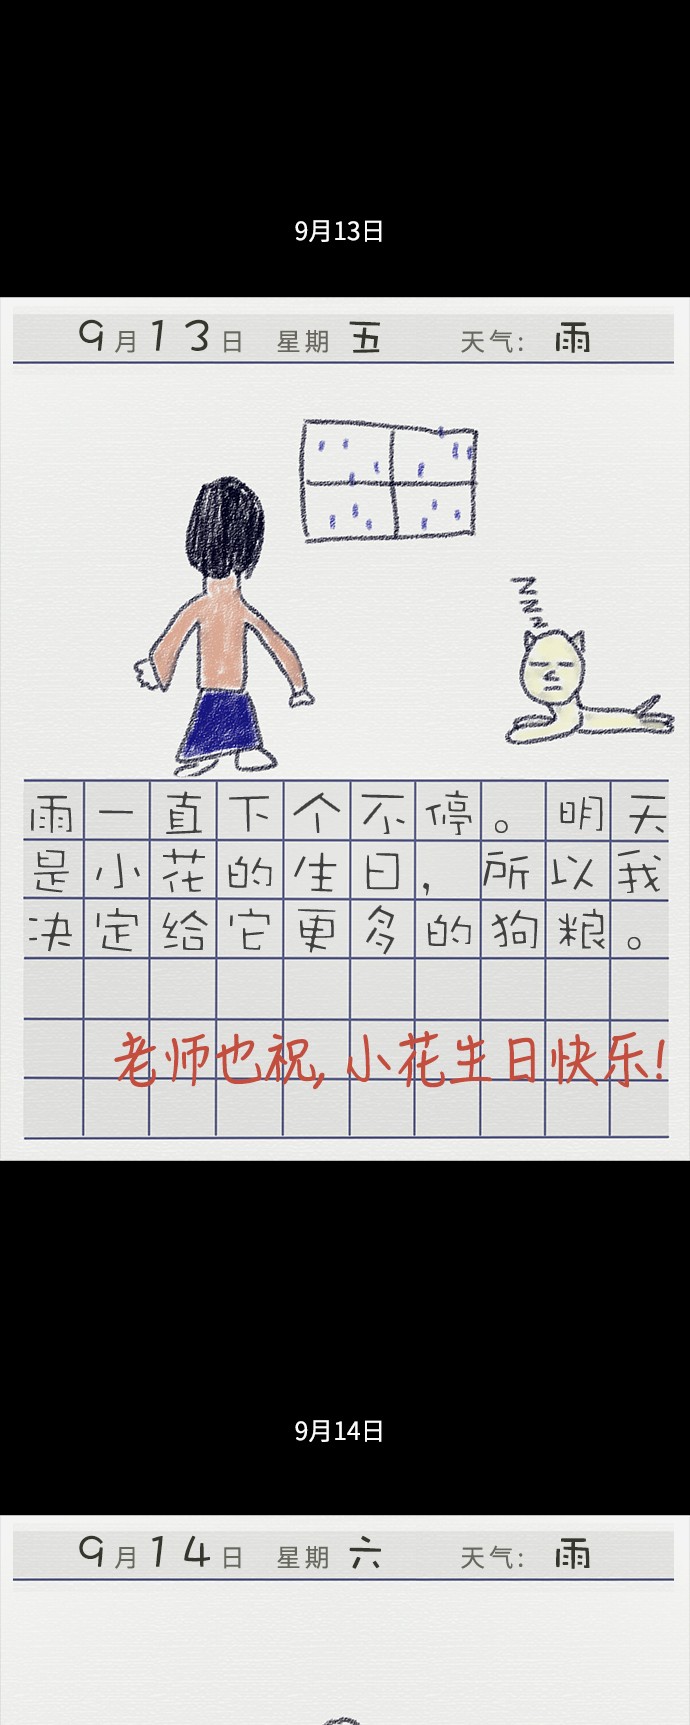 9月13日
9月13日 星期 五 天气: 雨
z
z
z
z
雨一直下个不停。明天
是小花的生日，所以我
决定给它更多的狗粮。
老师也祝,小花生日快乐!
9月14日
9月14日 星期 六 天气: 雨